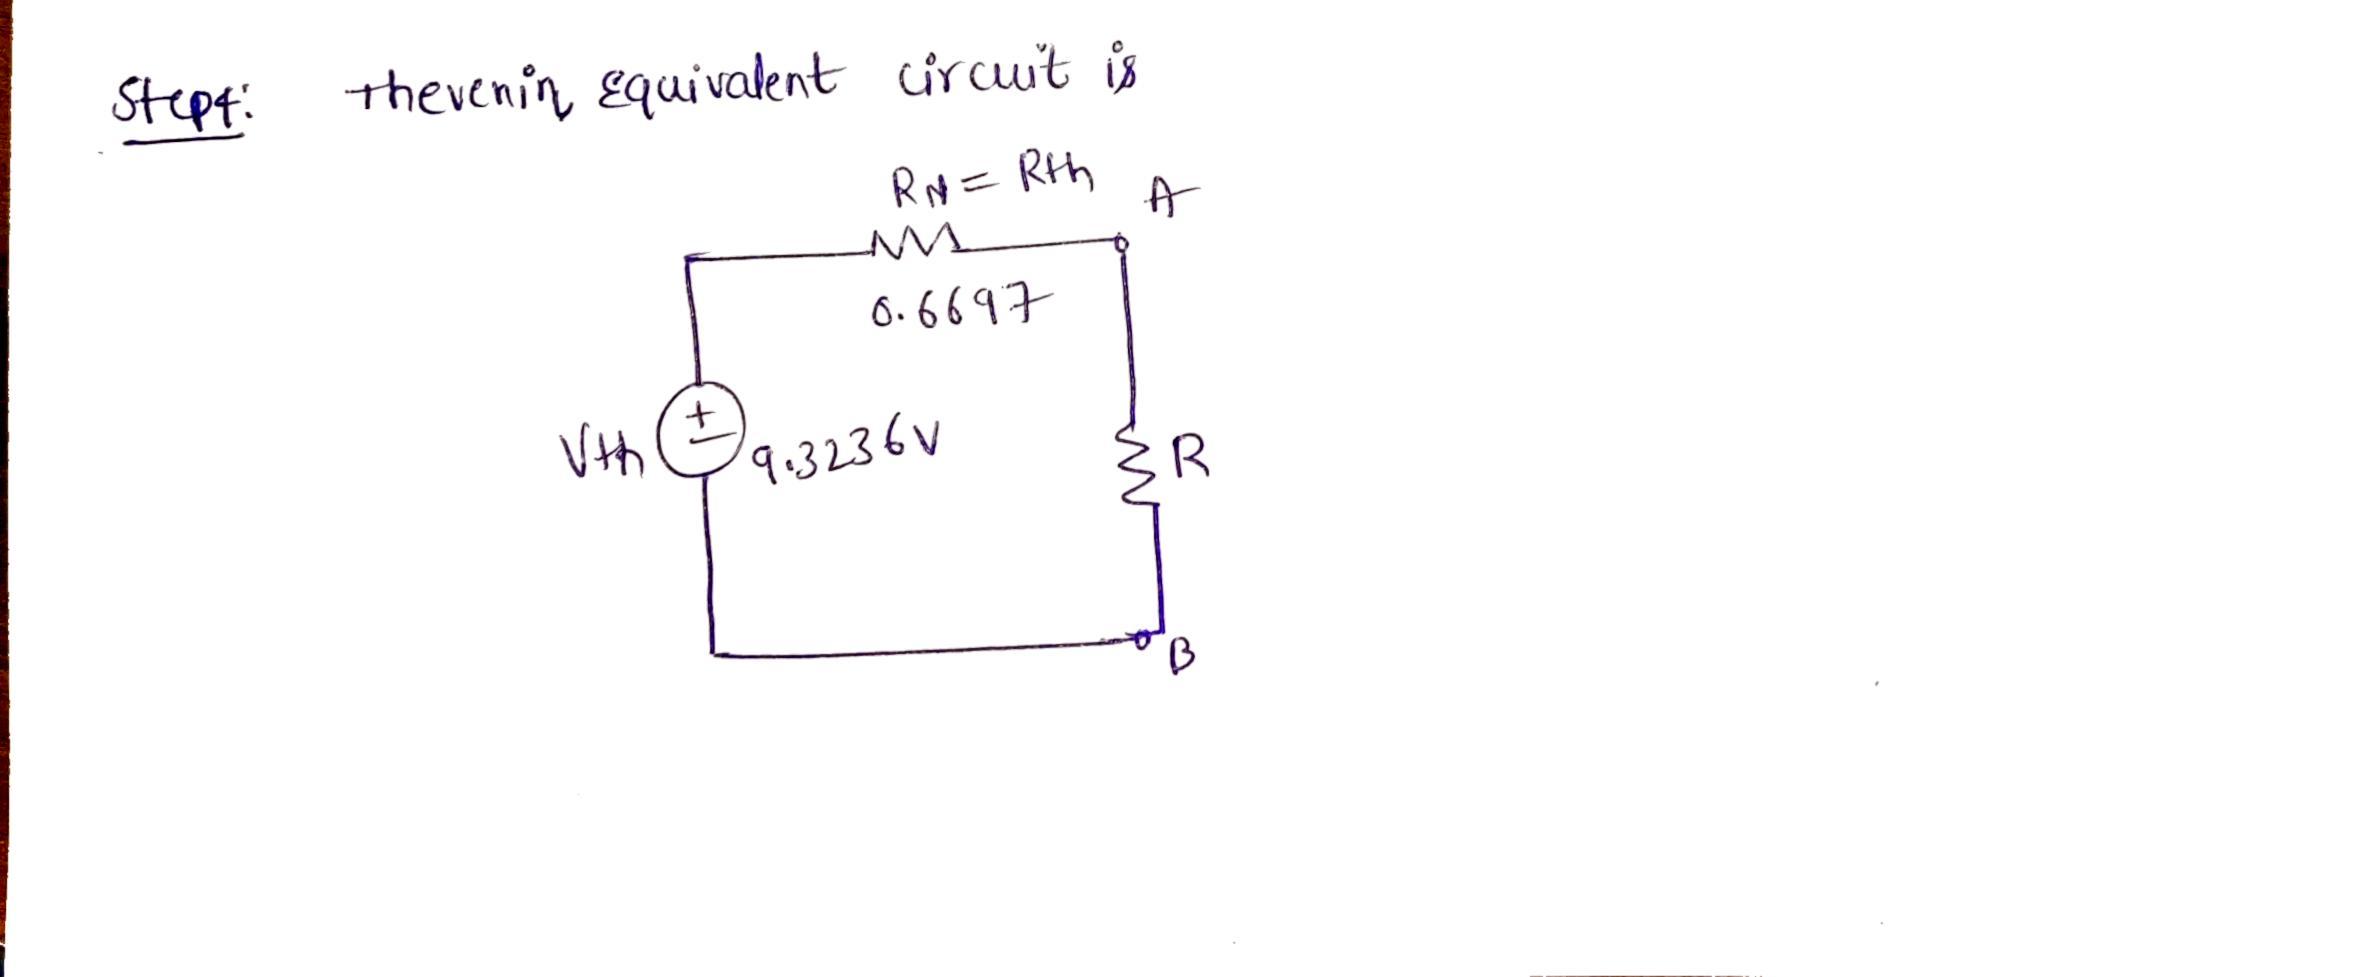 Step4: thevenin Equivalent circuit is
RN = Rth A
0.6697
Vth + 9.3236V R
B